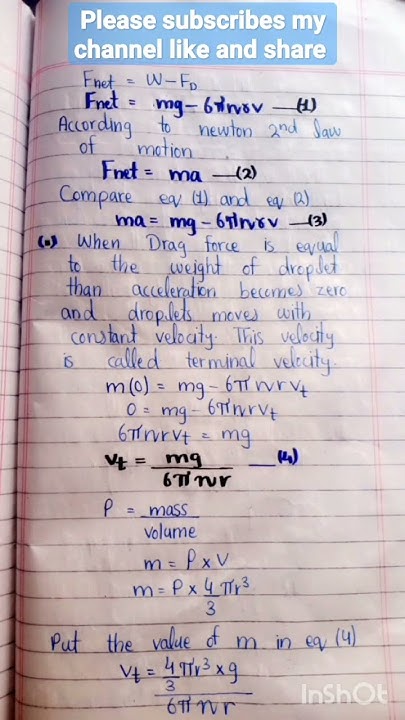 Please subscribes my
channel like and share
Fnet = W - F_D
Fnet = mg - 6πηrv —(1)
According to newton 2nd law
of motion
Fnet = ma —(2)
Compare eq (1) and eq (2)
ma = mg - 6πηrv —(3)
(•) When Drag force is equal
to the weight of droplet
than acceleration becomes zero
and droplets moves with
constant velocity. This velocity
is called terminal velocity.
m(0) = mg - 6πηrv_t
0 = mg - 6πηrv_t
6πηrv_t = mg
v_t = mg / 6πηr —(4)
ρ = mass / volume
m = ρ × V
m = ρ × 4/3 πr³
Put the value of m in eq (4)
v_t = 4/3 πr³ × g / 6πηr
InShOt